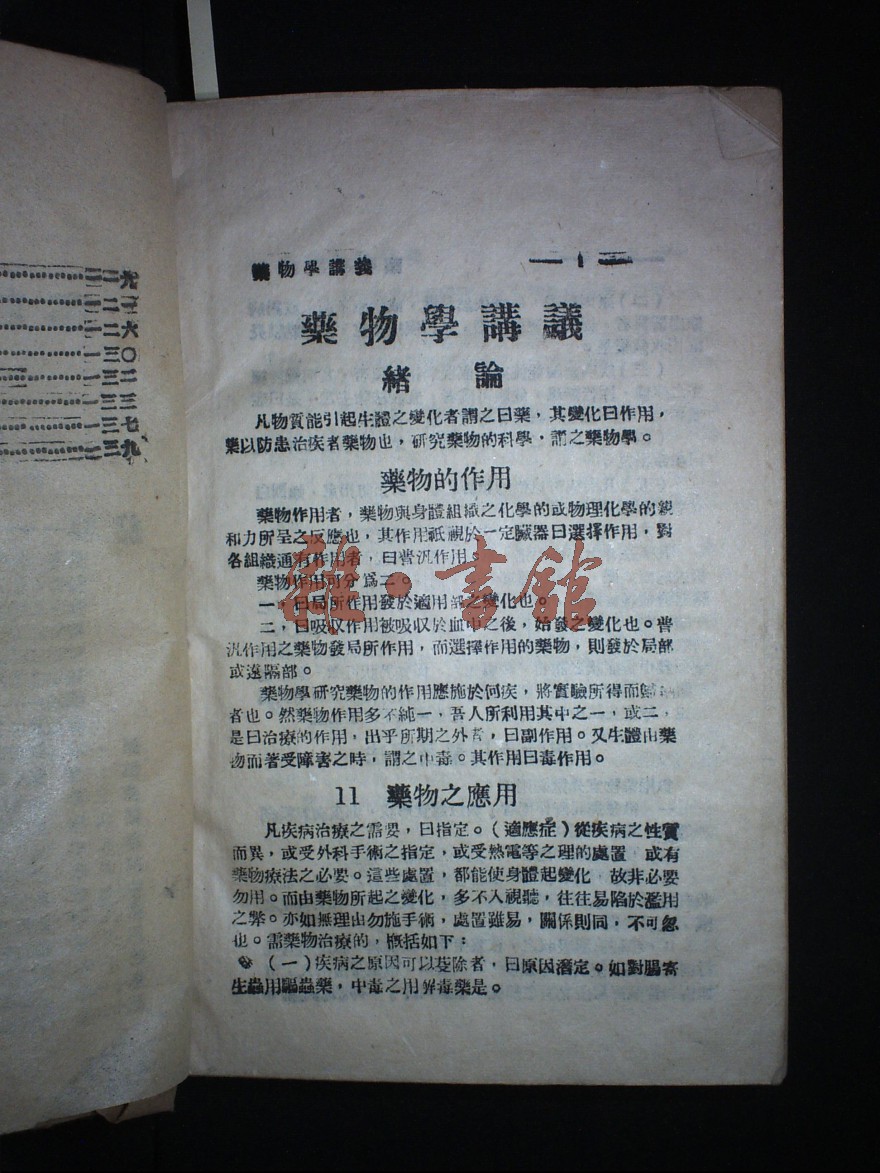 九
二
六
〇
二
三
七
九
藥物學講義
藥物學講議
緒 論
凡物質能引起生體之變化者謂之曰藥，其變化曰作用，
藥以防患治疾者藥物也，研究藥物的科學，謂之藥物學。
藥物的作用
藥物作用者，藥物與身體組織之化學的或物理化學的親
和力所呈之反應也，其作用祇視於一定臟器曰選擇作用，對
各組織通有作用者，曰普汎作用。
藥物作用可分爲二。
一，曰局所作用發於適用部之變化也。
二，曰吸収作用被吸収於血中之後，始發之變化也。普
汎作用之藥物發局所作用，而選擇作用的藥物，則發於局部
或遠隔部。
藥物學研究藥物的作用應施於何疾，將實驗所得而歸
者也。然藥物作用多不純一，吾人所利用其中之一，或二，
是曰治療的作用，出乎所期之外者，曰副作用。又生體由藥
物而著受障害之時，謂之中毒。其作用曰毒作用。
11 藥物之應用
凡疾病治療之需要，曰指定。（適應症）從疾病之性質
而異，或受外科手術之指定，或受熱電等之理的處置 或有
藥物療法之必要。這些處置，都能使身體起變化 故非必要
勿用。而由藥物所起之變化，多不入視聽，往往易陷於濫用
之弊。亦如無理由勿施手術，處置雖易，關係則同，不可忽
也。需藥物治療的，概括如下：
（一）疾病之原因可以芟除者，曰原因指定。如對腸寄
生蟲用驅蟲藥，中毒之用解毒藥是。
雜·書館